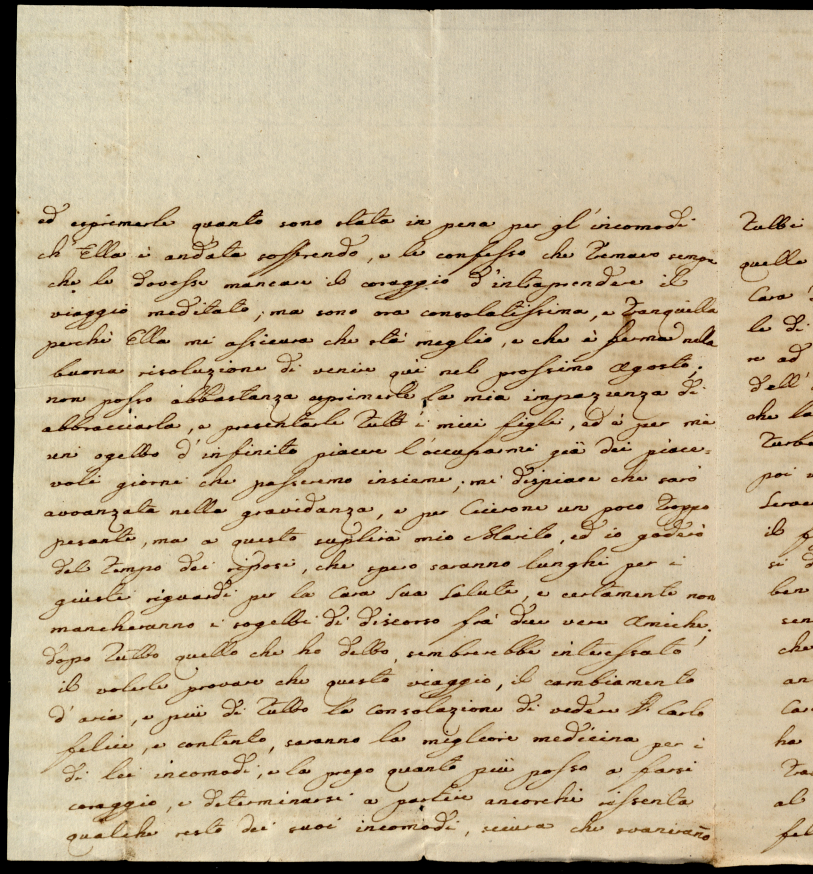 ed esprimerle quanto sono stata in pena per gl'incomodi
ch'Ella è andata soffrendo, e le confesso che Temevo sempre
che le dovesse mancare il coraggio d'intraprendere il
viaggio meditato; ma sono ora consolatissima, e Tranquilla
perchè Ella mi assicura che stà meglio, e che è ferma nella
buona risoluzione di venire quì nel prossimo Agosto;
non posso abbastanza esprimerle la mia impazienza di
abbracciarla, e presentarle Tutt'i miei figli, ed è per me
un ogetto d'infinito piacere l'occuparmi già dei piace=
voli giorni che passeremo insieme; mi dispiace che sarò
avvanzata nella gravidanza, e per Cicerone un poco Troppo
pesante, ma a questo suplirà mio Marito, ed io goderò
del Tempo dei riposi, che spero saranno lunghi per i
giusti riguardi per la cara Sua Salute, e certamente non
mancheranno i sogetti di discorso frà due vere Amiche;
dopo Tutto quello che ho detto, sembrerebbe interessato
il volerle provare che questo viaggio, il cambiamento
d'aria, e più di Tutto la consolazione di vedere D. Carlo
felice, e contento, saranno la migliore medicina per i
di lei incomodi, e la prego quanto più posso a farsi
coraggio, e determinarsi a partire ancorchè rissenta
qualche resto dei suoi incomodi, sicura che svaniranno
Tutti
quelle
Cara
le di
re ad
dell'
che la
Turba
poi
il
si d
ben
sen
che
an
Ca
ha
Tra
al
fel